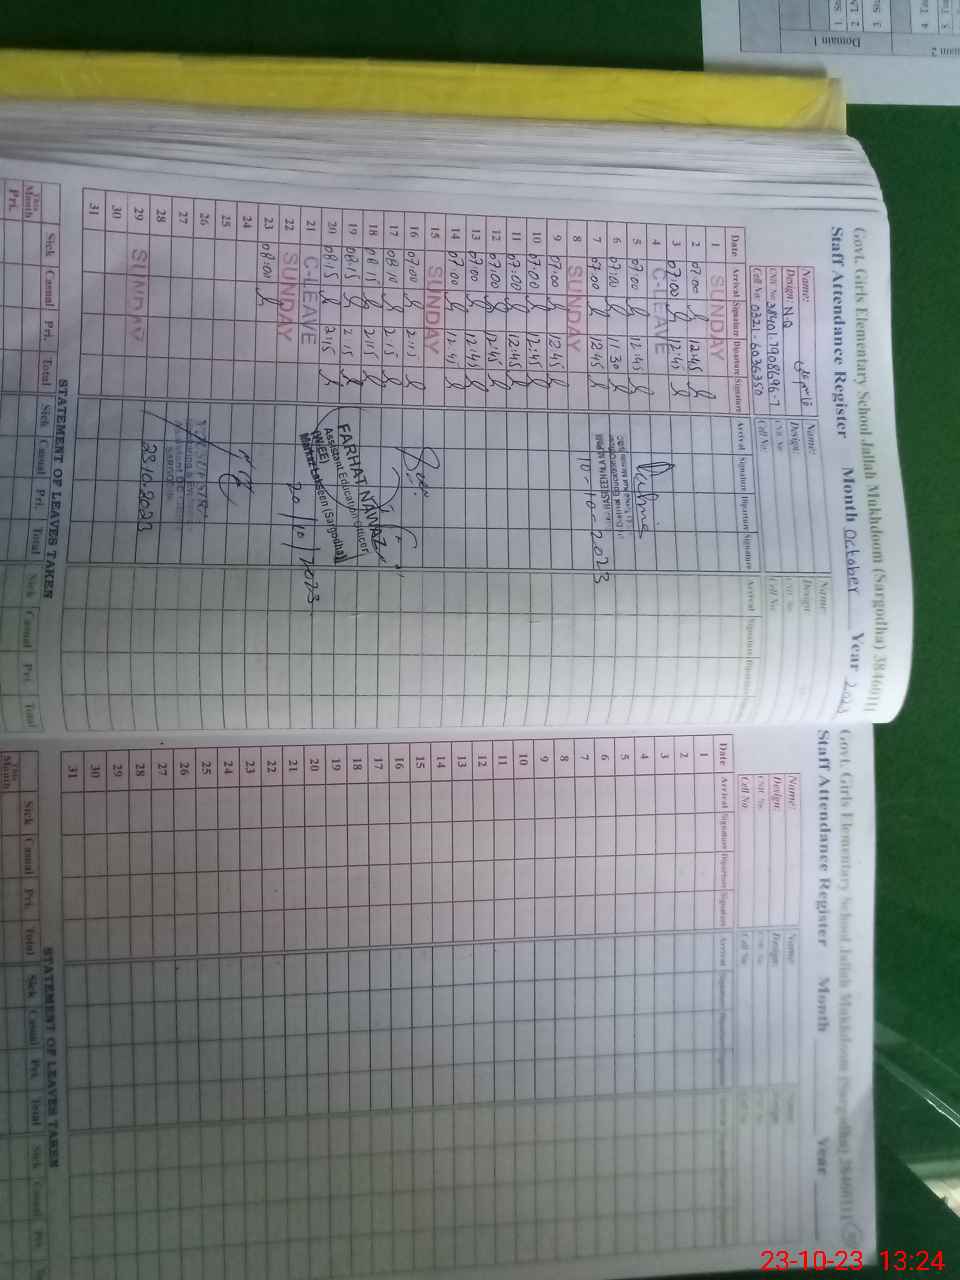 Govt. Girls Elementary School Jallah Makhdoom (Sargodha) 38460111
Staff Attendance Register Month October Year 2023
Name:
Design: N-Q
CNIC No: 38401-7908696-7
Cell No: 0321-6036350
Name:
Design:
CNIC No:
Cell No:
Name:
Design:
CNIC No:
Cell No:
Date Arrival Signature Diparture Signature Arrival Signature Diparture Signature Arrival Signature Diparture
1 SUNDAY
2 07:00 12:45
3 07:00 12:45
4 C-LEAVE
5 07:00 12:45
6 07:00 11:30
7 07:00 12:45
8 SUNDAY
9 07:00 12:45
10 07:00 12:45
11 07:00 12:45
12 07:00 12:45
13 07:00 12:45
14 07:00 12:45
15 SUNDAY
16 07:00 2:15
17 08:10 2:15
18 08:15 2:15
19 08:15 2:15
20 08:15 2:15
21 C-LEAVE
22 SUNDAY
23 08:00
24
25
26
27
28
29 SUNDAY
30
31
10-10-2023
FARHAT NAWAZ
Assistant Education Officer
(W-EE)
(Sargodha)
20/10/2023
STATEMENT OF LEAVES TAKEN
Sick Casual Pri. Total Sick Casual Pri. Total Sick Casual Pri. Total
This Month
Pri.
Govt. Girls Elementary School Jallah Makhdoom (Sargodha) 38460111
Staff Attendance Register Month Year
Name:
Design:
CNIC No:
Cell No:
Name:
Design:
CNIC No:
Cell No:
Name:
Date Arrival Signature Diparture Signature Arrival Signature
1
2
3
4
5
6
7
8
9
10
11
12
13
14
15
16
17
18
19
20
21
22
23
24
25
26
27
28
29
30
31
STATEMENT OF LEAVES TAKEN
Sick Casual Pri. Total Sick Casual Pri. Total Sick Casual Pri.
This Month
Domain 1
23-10-23 13:24